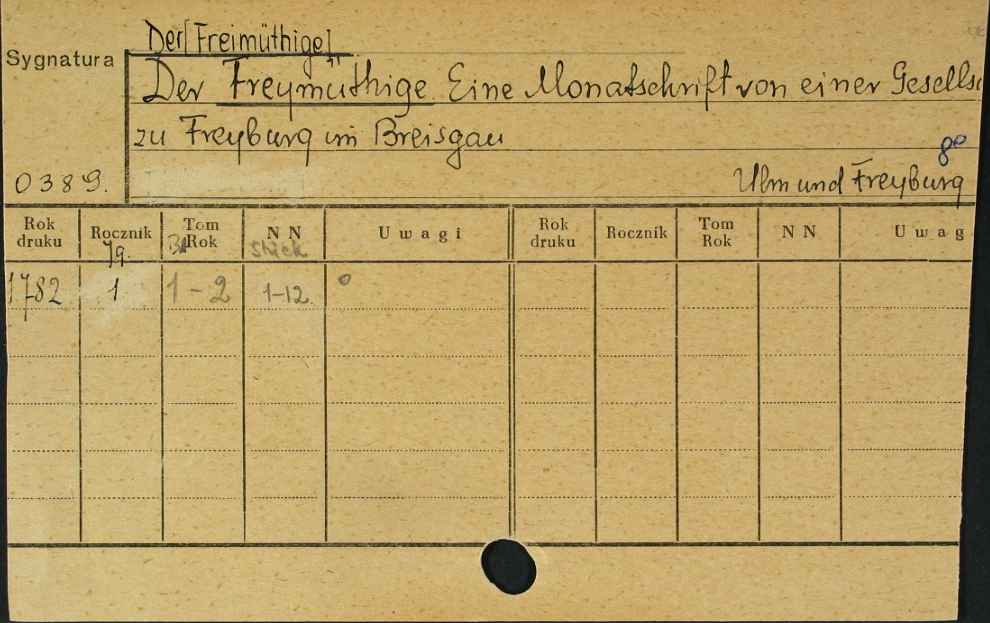 Der [Freimüthige]
Sygnatura
Der Freymüthige. Eine Monatschrift von einer Gesells
zu Freyburg im Breisgau
8°
0389.
Ulm und Freyburg
Rok druku Rocznik Tom Rok NN Uwagi Rok druku Rocznik Tom Rok NN Uwag
Jg. Bd Stück
1782 1 1-2 1-12.